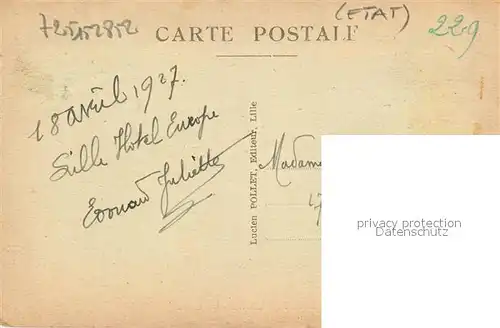 72552852
(ETAT)
229
CARTE POSTALE
18 avril 1927.
Lille Hotel Europe
Edouard Juliette
Lucien POLLET, Editeur, Lille
Madame
privacy protection
Datenschutz